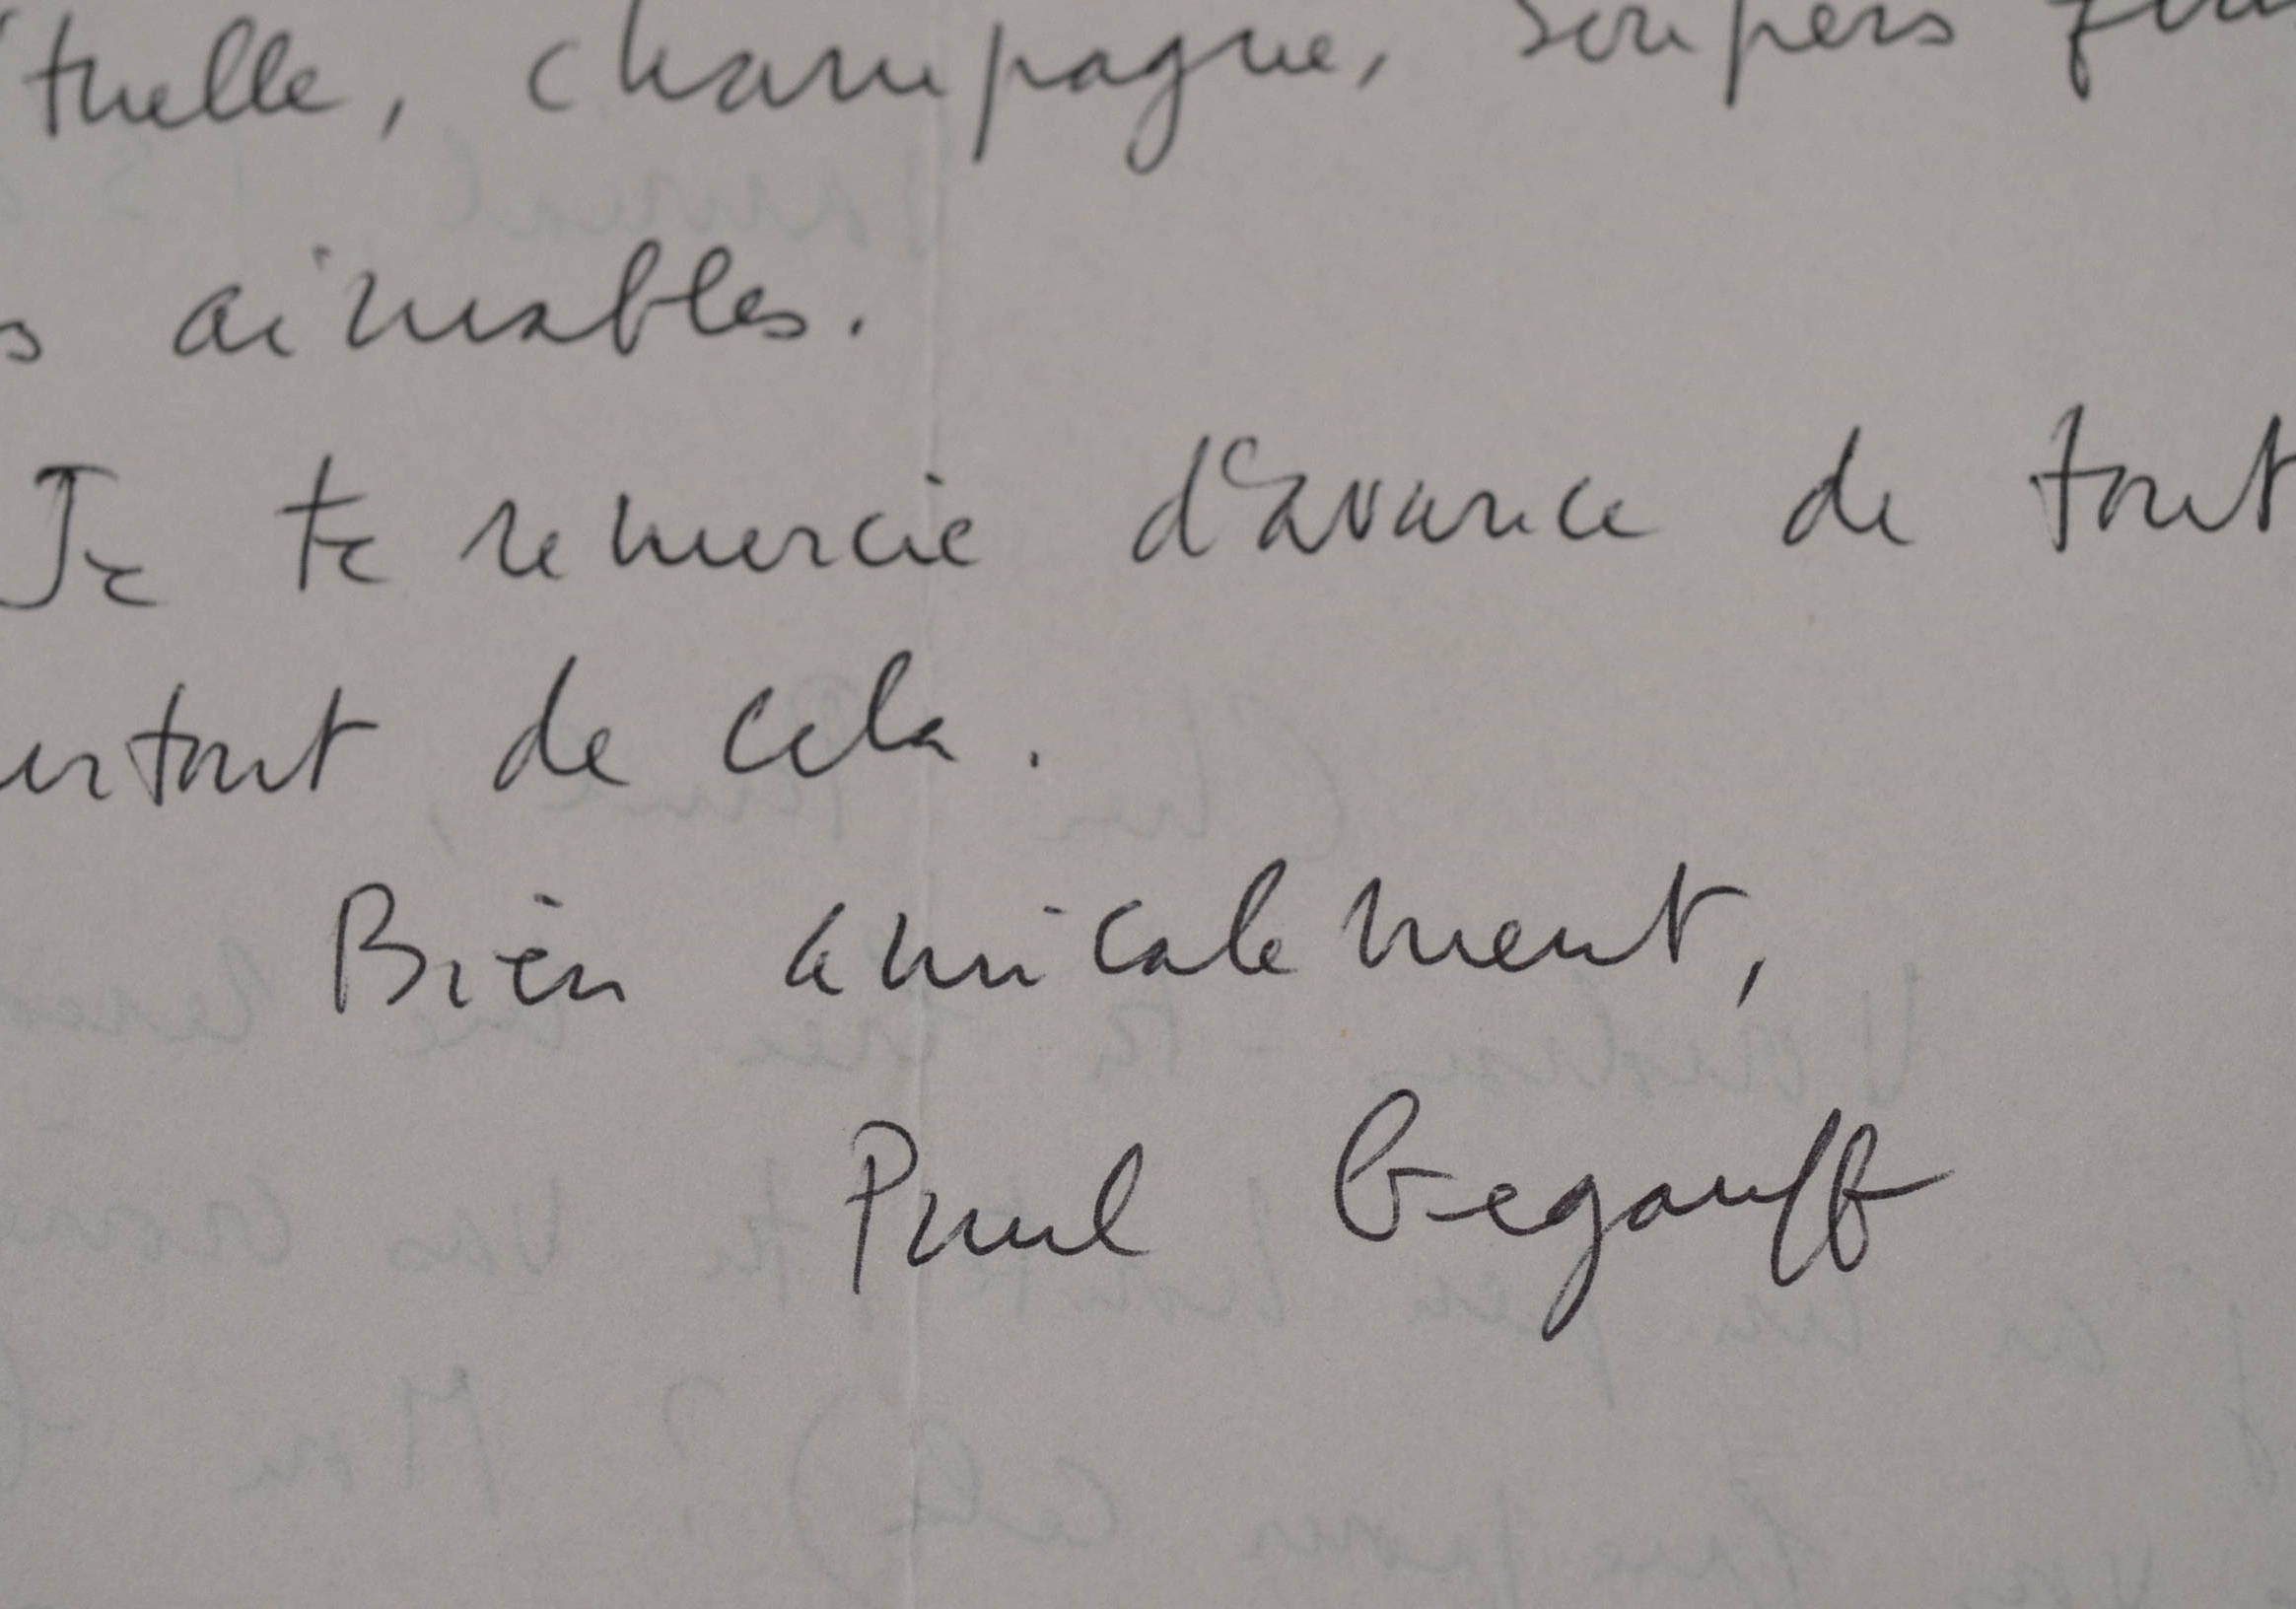 tuelle, champagne, soupers fins
s aimables.
Je te remercie d'avance de tout
urtout de cela.
Bien amicalement,
Paul Gegauff